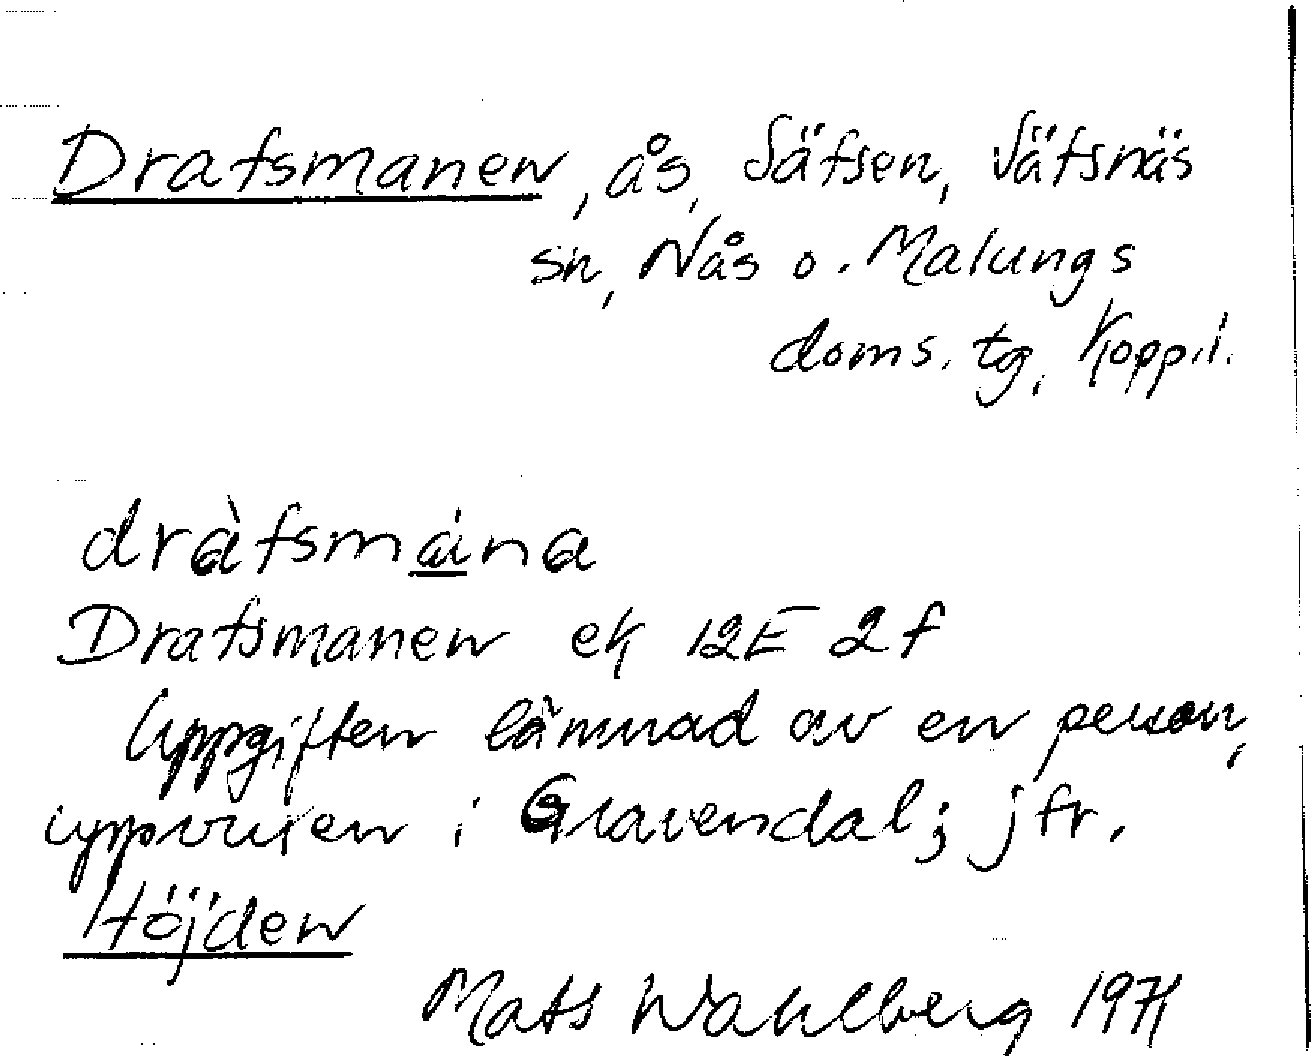 Drafsmanen, ås, Säfsen, Säfsnäs
sn, Nås o. Malungs
doms. tg, Kopp. l.
dràfsmána
Drafsmanen ek 12E 2f
Uppgiften lämnad av en person,
uppvuxen i Gravendal; jfr.
Höjden
Mats Wahlberg 1971